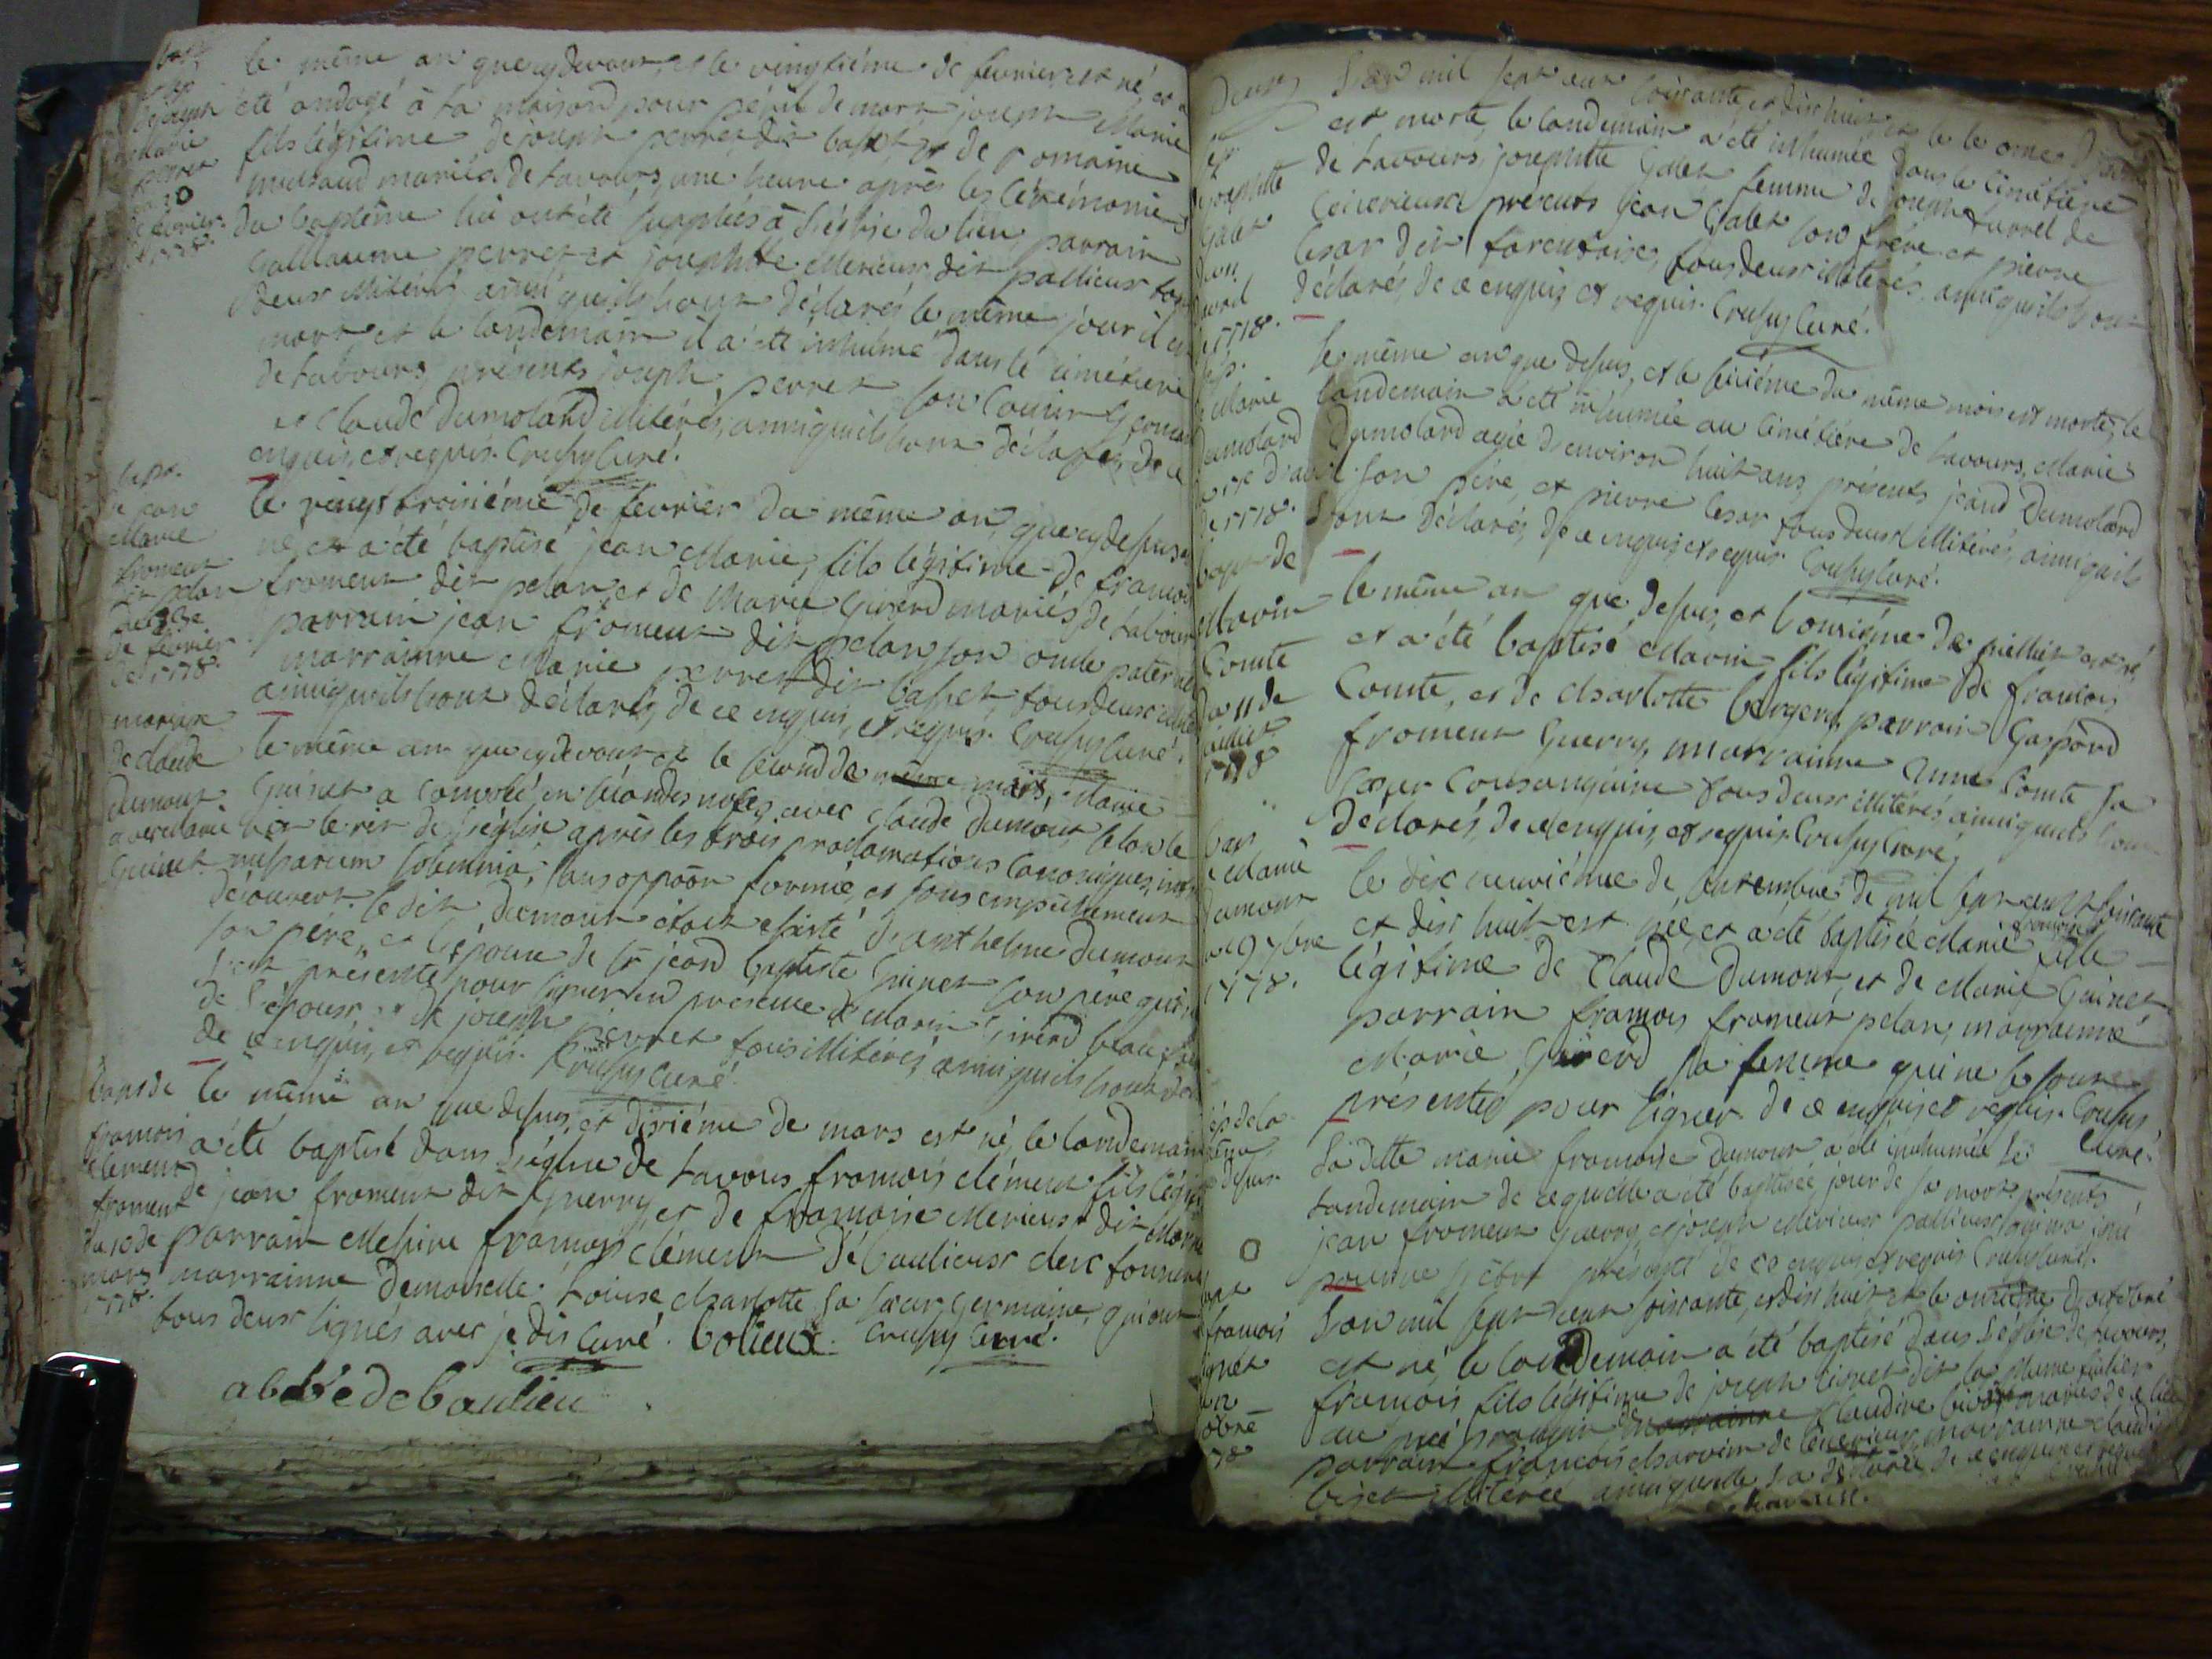 le même an que cy devant, et le vingtiéme de fevrier, est né, et a
été ondoyé à la maison pour péril de mort joseph Marie
fils légitime de joseph perret dit basset et de romaine
mariés de tavours, une heure après les cérémonies
du baptême lui ont été supplées à l'église du lieu, parrain
Gullaume perret et josephtte Merieux dit pallieux tous
deux illitérés ainsi qu'ils l'ont déclarés le même jour il est
mort et le landemain il a été inhumé dans le cimétiere
de tavours, présents joseph perret son cousin Germain
et Claude Dumolard illitérés, ainsi qu'ils l'ont déclarés, de ce
enquis, et requis. Crussy Curé.
le vingt troisiéme de fevrier du même an, que cy dessus est
né, et a été baptisé jean Marie, fils légitime de francois
froment dit pelan, et de Marie Girerd mariés, de tavours
parrain jean froment dit pelan, son oncle paternel
marrainne Marie perret dit basset, tous deux
ainsi qu'ils l'ont déclarés, de ce enquis, et requis. Crussy Curé.
le même an que cy devant et le second de même mars, Marie
Guinet a convolé en secondes nopces avec claude Dumont, selon le
rit de l'église, après les trois proclamations canoniques,
nuptiarum solemnia, sans oppoon formée, et sans empêchement
découvert. le dit Dumont étoit assisté d'anthelme Dumont
son père, et l'épouse de Sr jean baptiste Guinet son père qui
présenté pour signer en presence de Marin Girerd beau frere
de l'époux et de joseph perret tous illitérés, ainsi qu'ils l'ont
de ce enquis, et requis. Crussy Curé.
le même an que dessus, et dixiéme de mars est né, le landemain
a été baptisé dans l'église de tavours francois clément fils
de jean froment dit Guerry, et de francoise Merieux dit
parrain Messire francois clément de baulieux clerc tonsuré,
marrainne demoiselle Louise charlotte sa sœur Germaine, qui ont
tous deux signés avec je dis Curé. bolieux. Crussy Curé.
abbé de baulieu
joseph
marie
perret
fevrier
1778.
jean
Marie
froment
dit pelan
de fevrier
de 1778.
mariage
de claude
dumont
avec marie
Guinet
bap de
francois
clement
froment
du 10 de
mars
L'an mil sept cent soixante, et dix huit, et le onze
est morte, le landemain a été inhumée dans le cimétiére
de tavours, josephtte Galet femme de joseph turrel de
Ceizerieux, présents jean Galet son frére et pierre
Cesar dit tous deux illitérés ainsi qu'ils l'ont
déclarés, de ce enquis, et requis. Crussy Curé.
le même an que dessus, et le seiziéme du même mois est morte, le
landemain a été inhumée au cimétiére de tavours, Marie
Dumolard agée d'environ huit ans, présents jean Dumolard
son pére, et pierre Cesar tous deux illitérés, ainsi qu'ils
l'ont déclarés, de ce enquis, et requis. Crussy Curé.
le même an que dessus, et l'onziéme de juilliet est né,
et a été baptisé Marin fils légitime de francois
Comte, et de charlotte bergere, parrain Gaspard
froment Guerry, marrainne Anne Comte sa
sœur consanguine tous deux illitérés, ainsi qu'ils l'ont
déclarés, de ce enquis, et requis. Crussy Curé.
le dix neuviéme de septembre de mil sept cent soixante
et dix huit est née, et a été baptisée Marie francoise fille
légitime de Claude Dumont, et de Marie Guinet,
parrain francois froment pelan, marrainne
Marie Girerd sa femme qui ne se sont
présentés pour signer de ce enquis, et requis. Crussy
Curé.
La ditte marie francoise dumont a été inhumée le
landemain de ce quelle a été baptisée, jour de sa mort. présents
jean froment guerry, et joseph Merieux pallieux
de ce enquis, et requis Crussy Curé.
L'an mil sept cent soixante, et dix huit et le onziéme d'octobré
est né le landemain a été baptisé dans l'église de tavours,
francois fils légitime de joseph
marrainne Claudine mariés de ce lieu
parrain francois charvin de Ceizerieux, marrainne claudine
illitérée ainsi quelle l'a déclarée de ce enquise et requise
josephtte
Galet
1778.
Marie
Dumolard
1778.
bapt de
Marin
Comte
du 11 de
juillet
1778
bap
Marie
dumont
19 7bre
1778.
francois